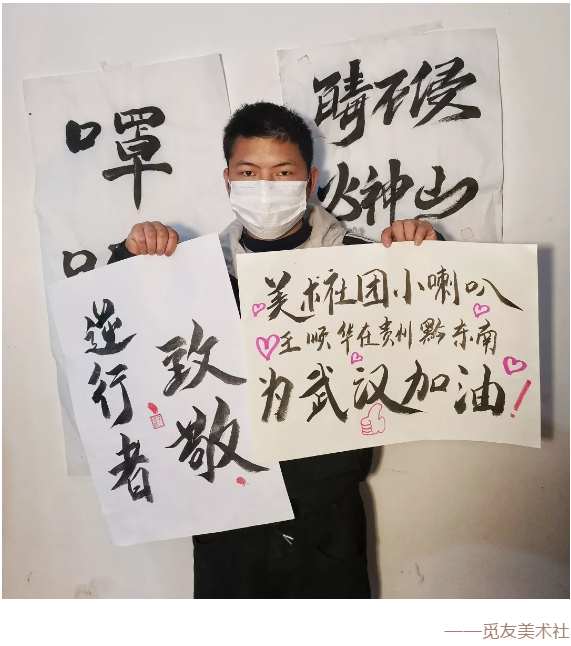 口罩
不侵
火神山
致敬
逆行者
美术社团小喇叭
王顺华在贵州黔东南
为武汉加油！
——觅友美术社